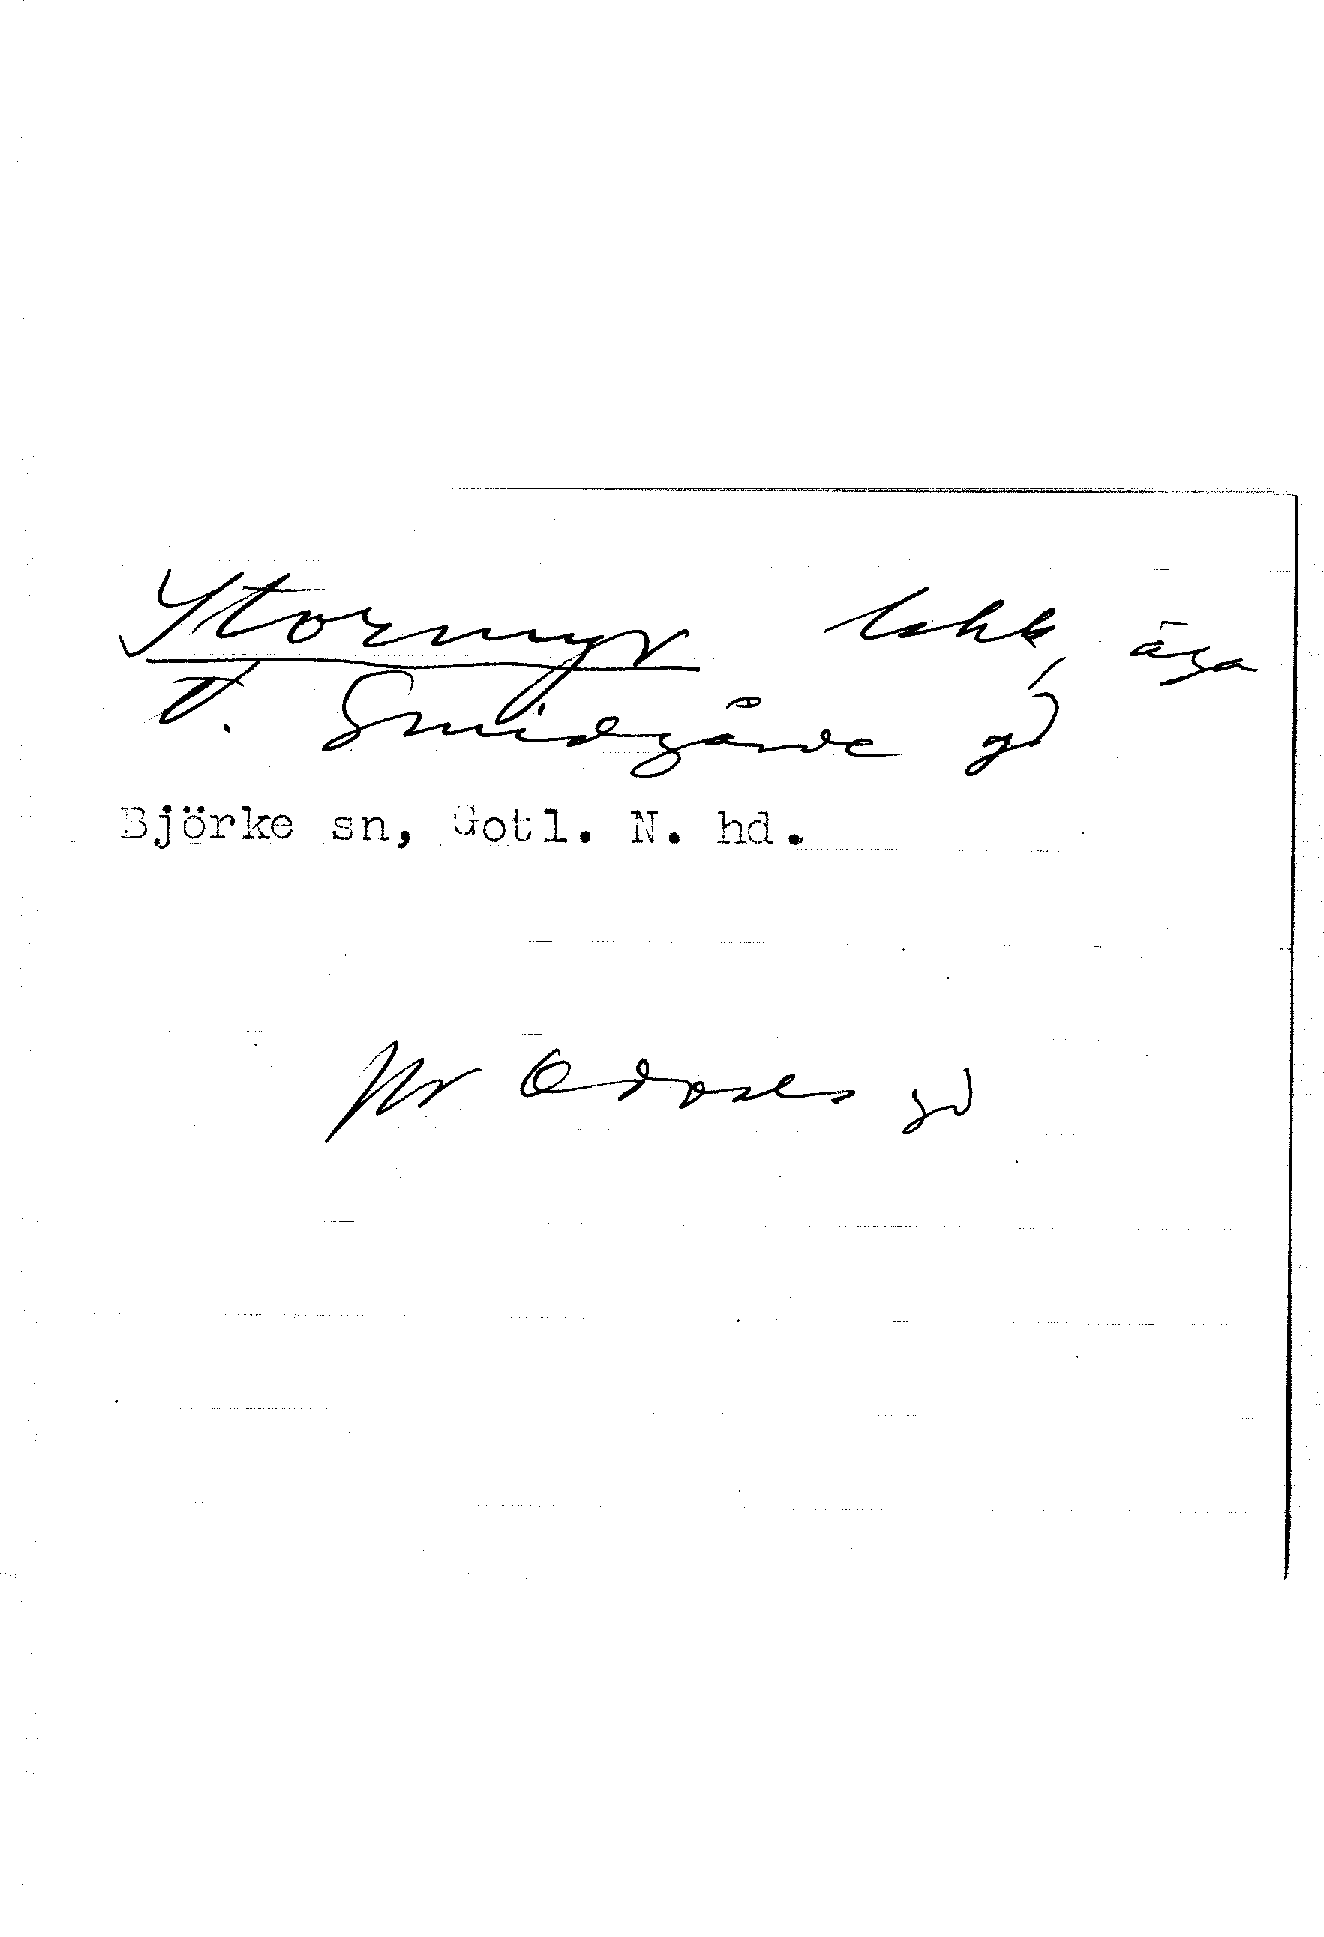 Stormyr lokk, äga
T. Smidgårde gd
Björke sn, Gotl. N. hd.
nr gd